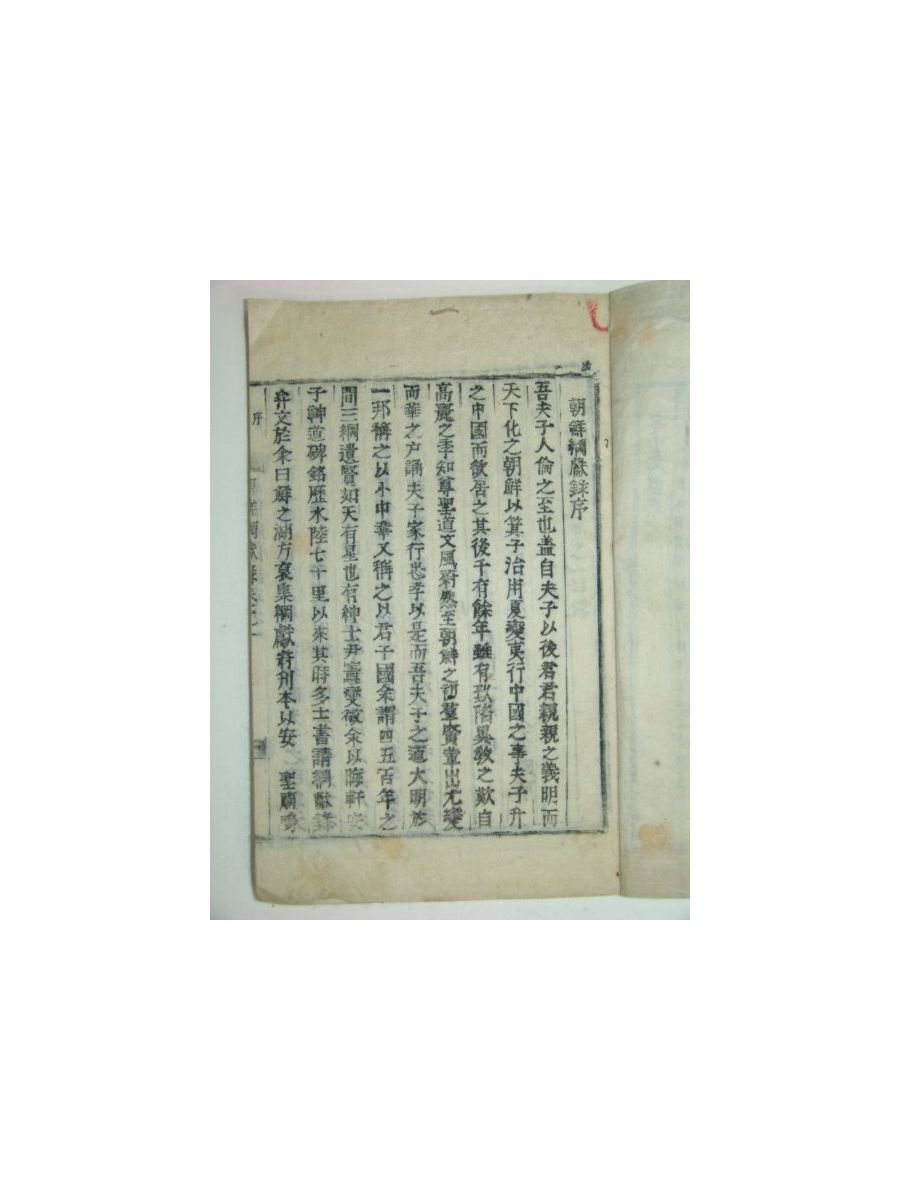 朝鮮綱獻錄序
吾夫子人倫之至也蓋自夫子以後君君親親之義明而
天下化之朝鮮以箕子治用夏變夷行中國之事夫子升
之中國而欲居之其後千有餘年雖有陷異敎之歎自
高麗之季知尊聖道文風蔚然至朝鮮之初羣賢輩出尤變
而華之戶誦夫子家行忠孝以是而吾夫子之道大明於
一邦稱之以小中華又稱之以君子國余謂四五百年之
間三綱遺賢如天有星也有紳士尹憲變徵余以晦軒安
子神道碑銘歷水陸七千里以來其時多士書請綱獻錄
弁文於余曰鮮之湖方裒集綱獻將刊本以安 聖廟
序